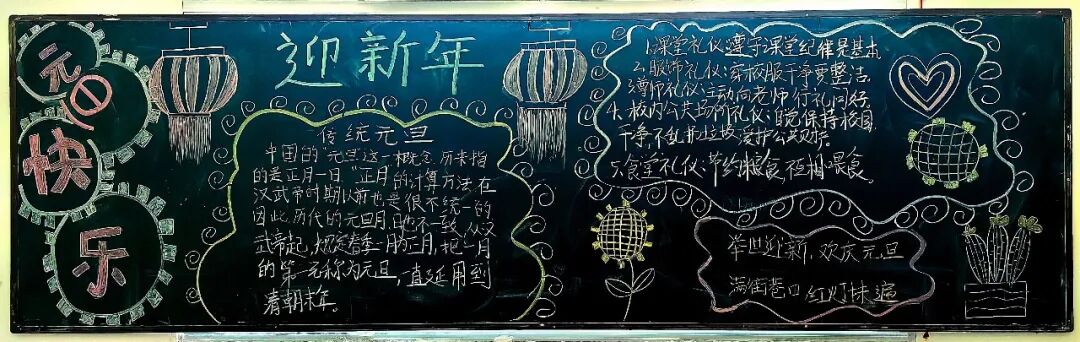 元旦
快
乐
迎新年
传统元旦
中国的元旦这一概念，历来指
的是正月一日"正月的计算方法，在
汉武帝时期以前也是很不统一的
因此，历代的元旦月、日也不一致，从汉
武帝起，规定春季一月为正月，把一月
的第一天称为元旦，一直延用到
清朝末年。
1.课堂礼仪：遵守课堂纪律是基本
2、服饰礼仪：穿校服干净要整洁
3尊师礼仪：主动向老师行礼问好.
4、校内公共场所礼仪：自觉保持校园
干净，不乱扔垃圾爱护公共
5.食堂礼仪：节约粮食，
举世迎新，欢庆元旦
满街巷口红灯